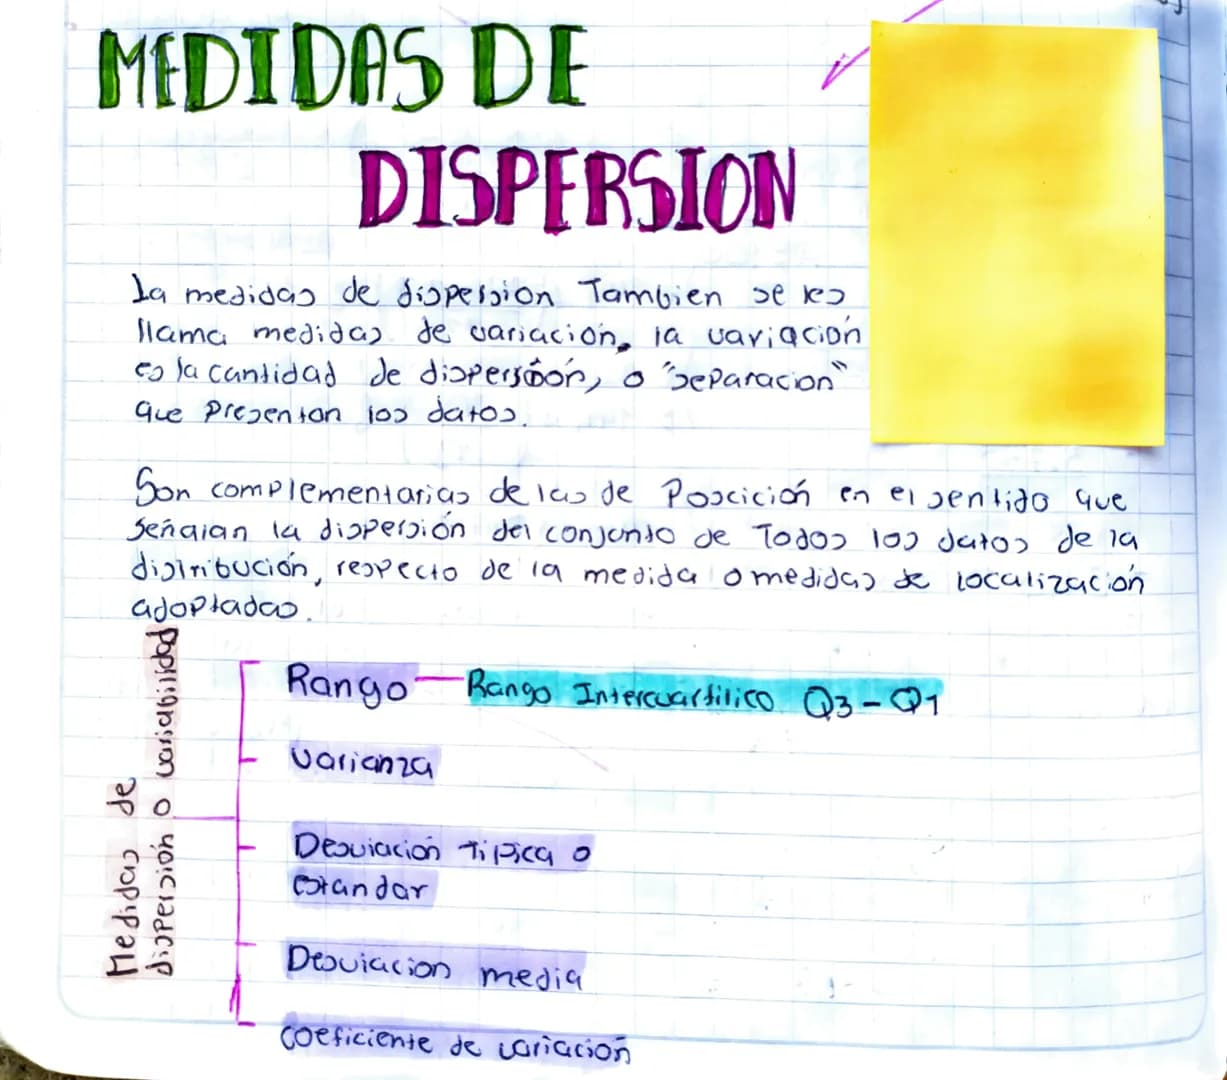 MEDIDAS DE
DISPERSION
La medidas de dispersion Tambien se les
llama medidas de variación, la variación
es la cantidad de dispersión, o "separacion"
que presentan los datos.
Son complementarias de las de Poscición en el sentido que
señalan la dispersión del conjunto de Todos los datos de la
distribución, respecto de la medida o medidas de localización
adoptadas.
Medidas de
dispersión o variabilidad
Rango — Rango Intercuartilico Q3-Q1
Varianza
Desviación Tipica o
estandar
Desviacion media
coeficiente de variación